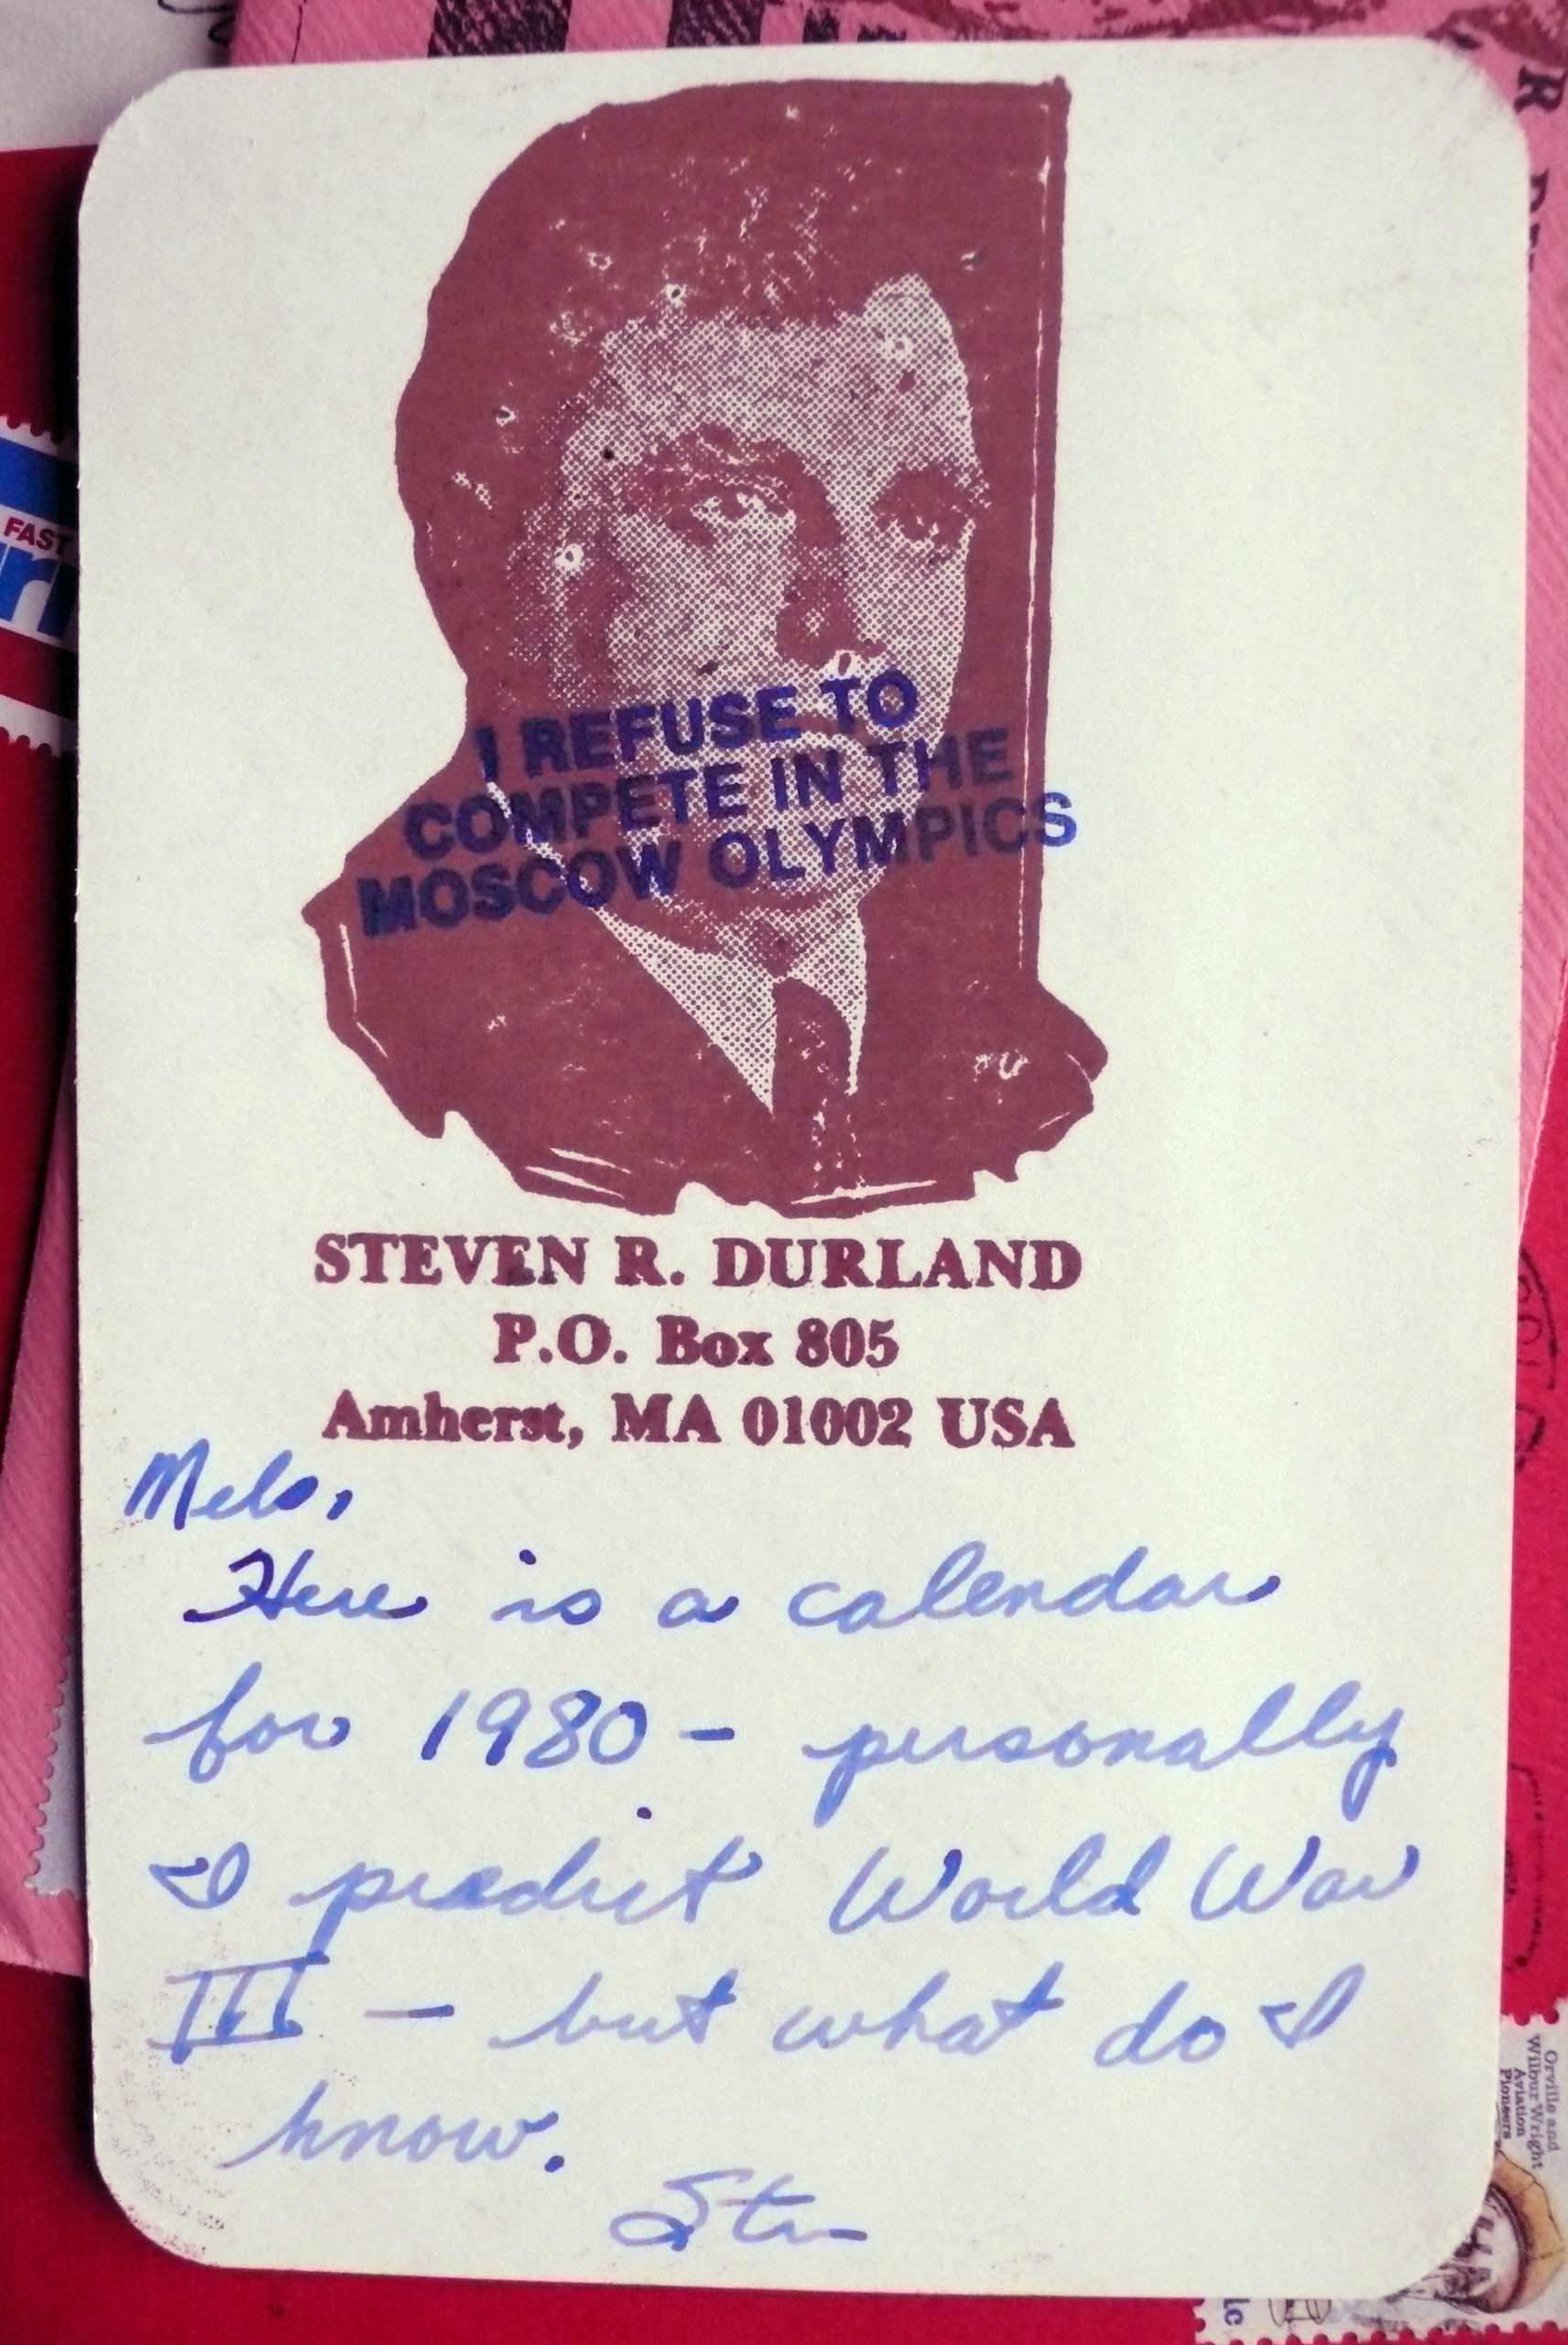 I REFUSE TO
COMPETE IN THE
MOSCOW OLYMPICS
STEVEN R. DURLAND
P.O. Box 805
Amherst, MA 01002 USA
Here is a calendar
for 1980 - personally
I predict World War
III - but what do I
know.
FAST
Orville and
Wilbur Wright
Aviation
Pioneers